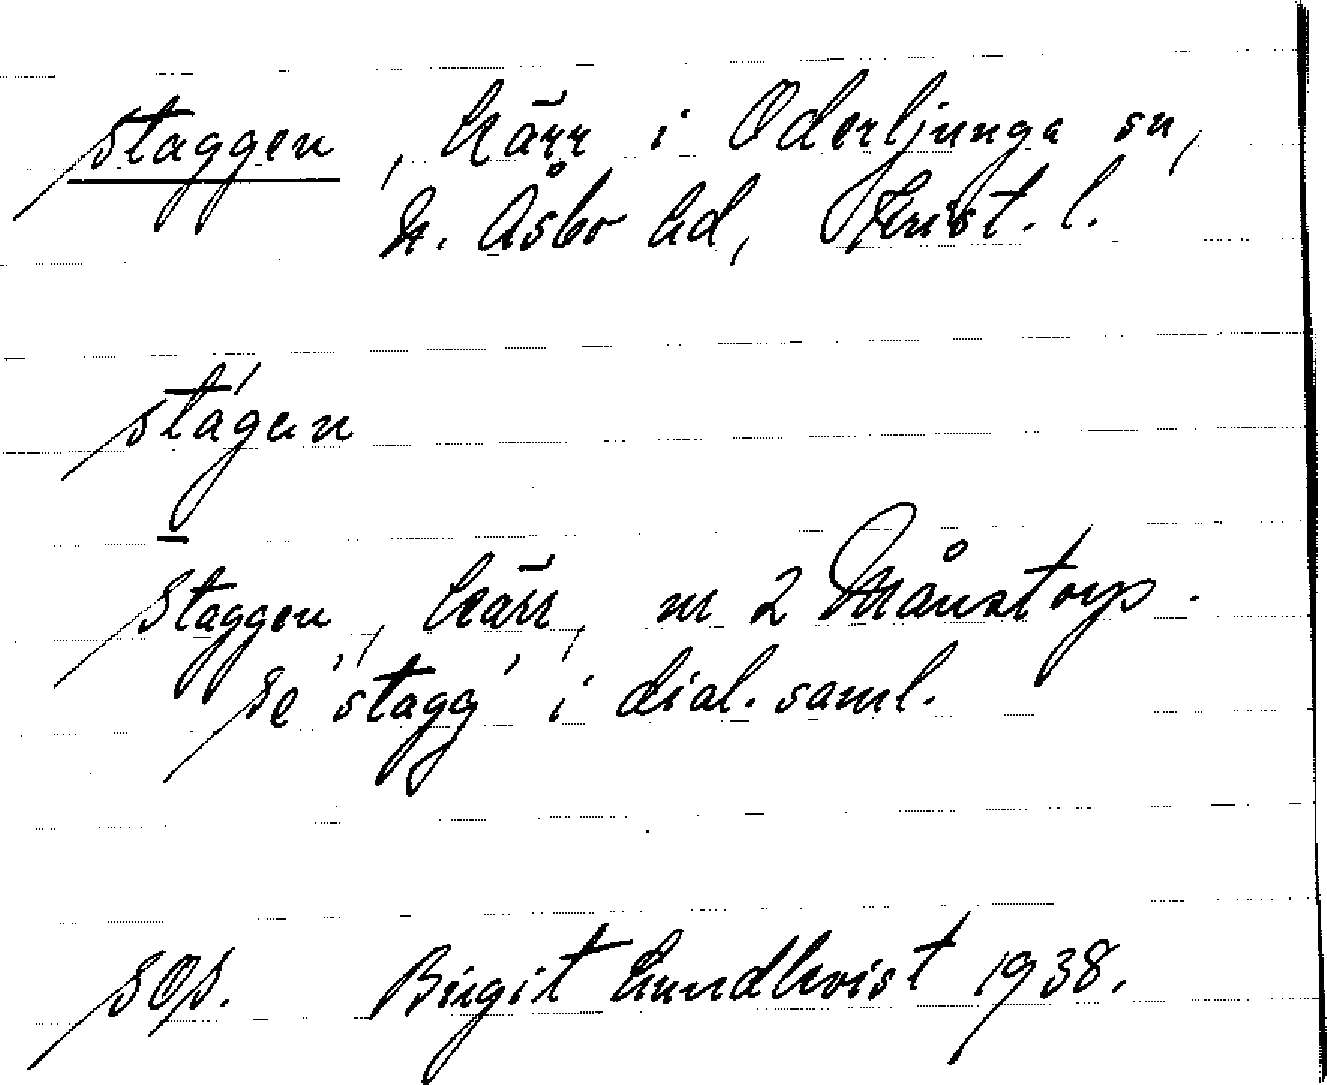 Staggen, kärr i Oderljunga sn,
N. Åsbo hd, Krist. l.
stágεn
Staggen, kärr, nr 2 Månstorp.
Se 'stagg' i dial. saml.
SOS. Birgit Lundkvist 1938.